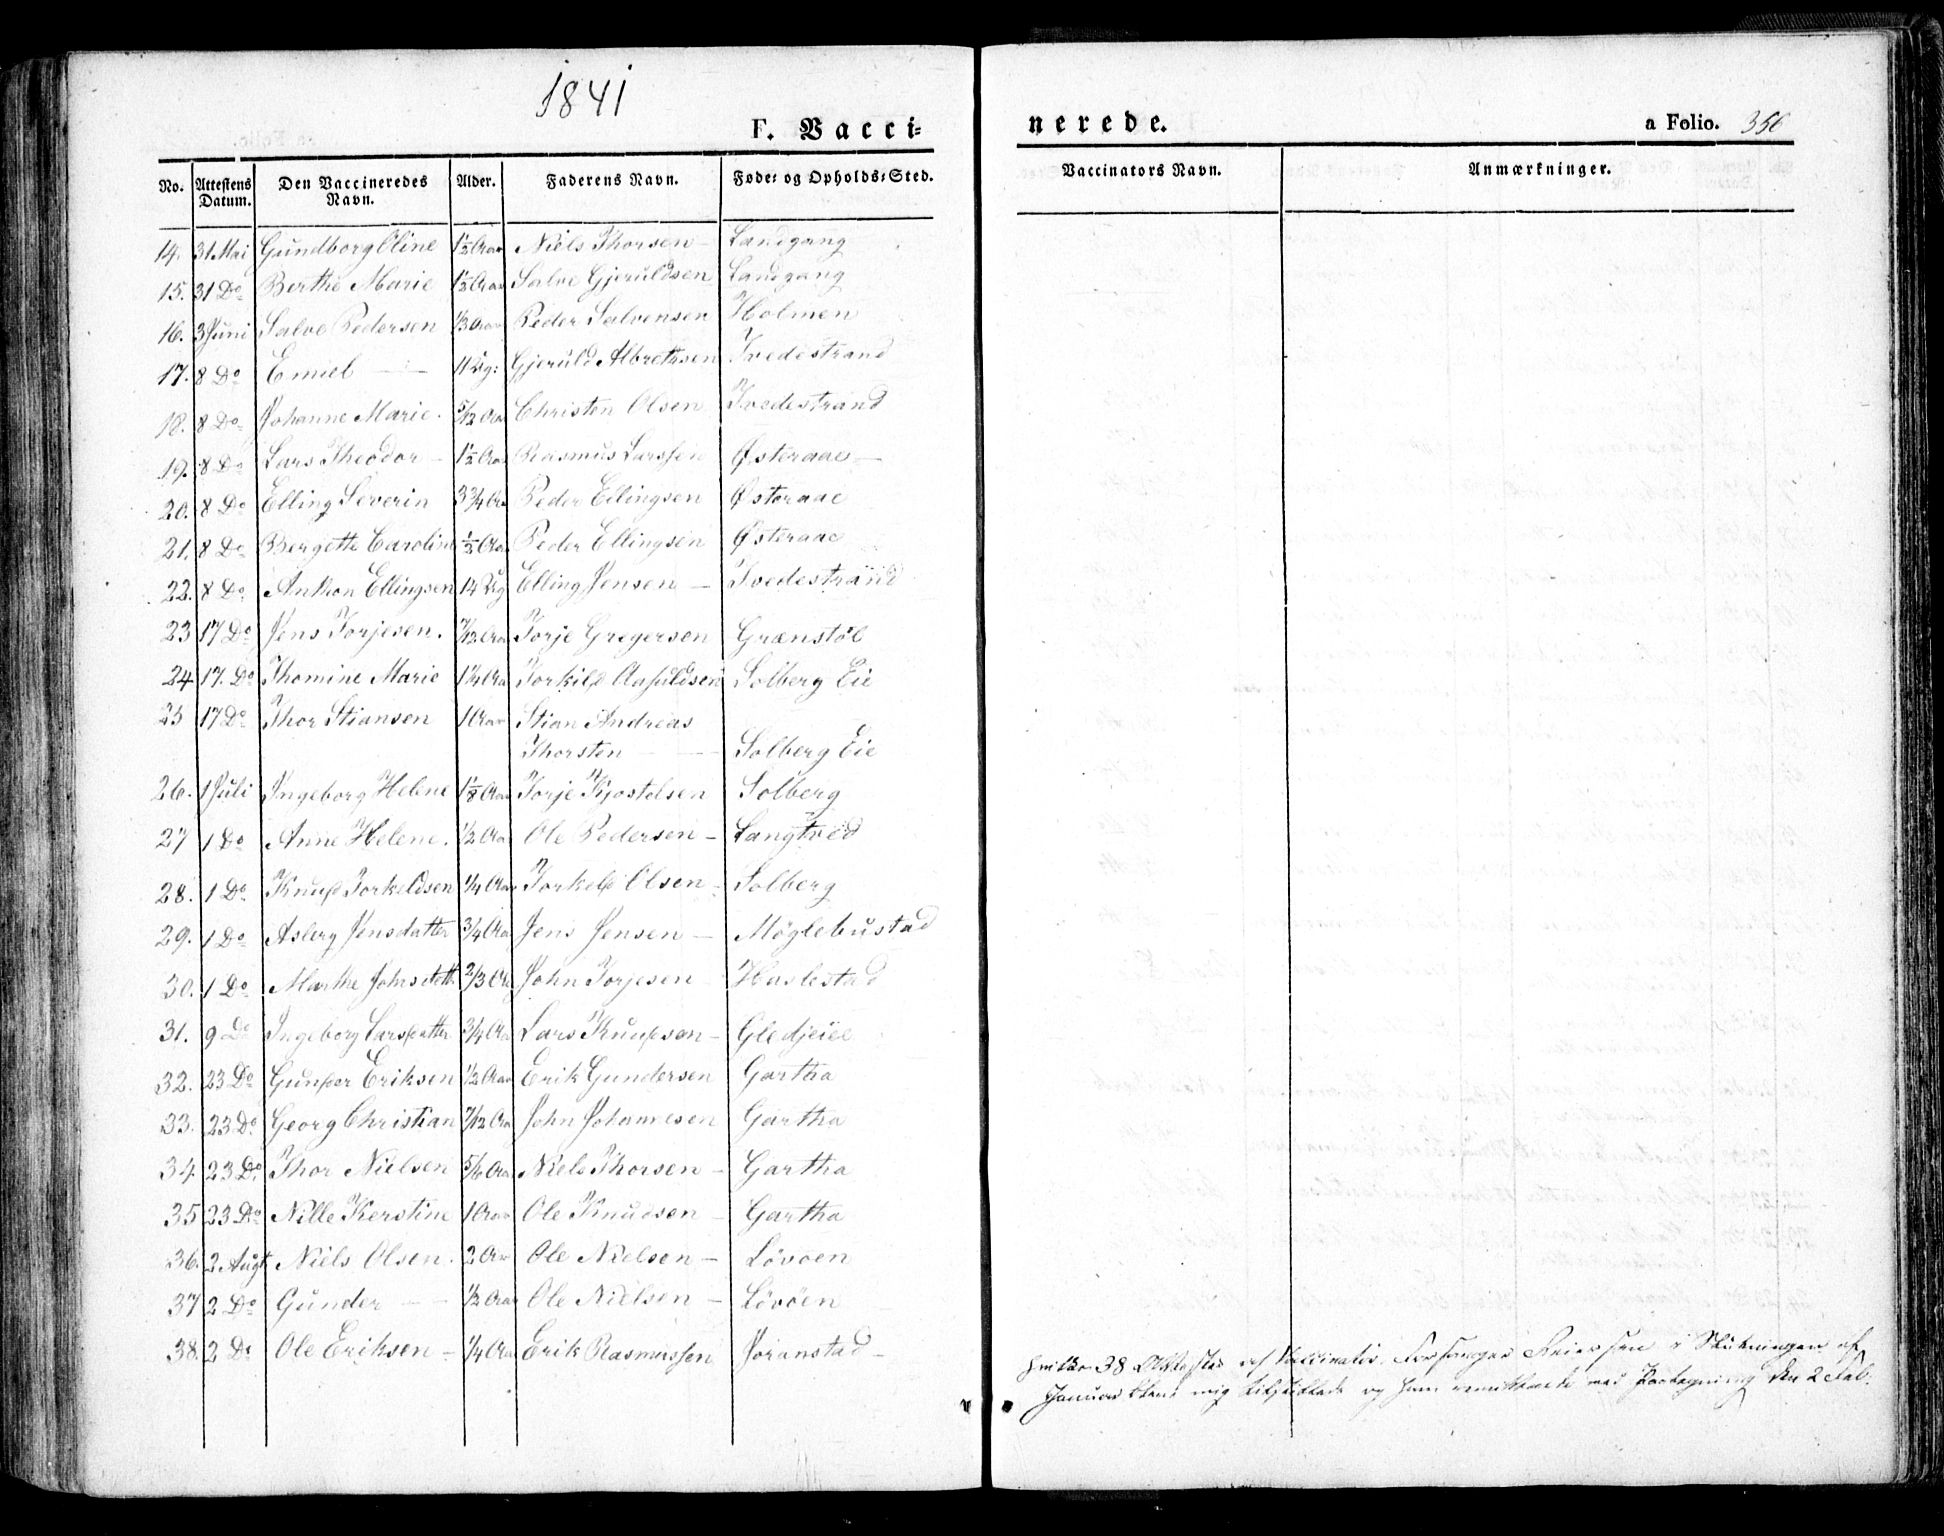 1841
F. Vacci=
nerede.
a Folio. 356
No. Attestens Datum. Den Vaccineredes Navn. Alder. Faderens Navn. Føde= og Opholds=Sted.
Vaccinators Navn. Anmærkninger.
14. 31 Mai Gundborg Oline 1½ Aar Niels Thorsen – Landgang
15. 31 Do Berthe Marie 1½ Aar Salve Gjeruldsen Landgang
16. 3 Juni Salve Pedersen 1/3 Aar Peder Salvensen Holmen
17. 8 Do Emiel – 11 Ug: Gjeruld Albretsen Tvedestrand
18. 8 Do Johanne Marie. 5/12 Aar Christen Olsen Tvedestrand
19. 8 Do Lars Theodor – 1½ Aar Rasmus Larssen Østeraae –
20. 8 Do Elling Severin 3 3/4 Aar Peder Ellingsen Østeraae
21. 8 Do Bergette Caroline ½ Aar Peder Ellingsen Østeraae
22. 8 Do Anthon Ellingsen 14 Ug Elling Jensen – Tvedestrand
23 17 Do Jens Torjesen. 7/12 Aar Torje Gregersen Grænstøl
24 17. Do Thomine Marie 1¼ Aar Torkild Aasuldsen Solberg Eie
25 17 Do Thor Stiansen 1 Aar Stian Andreas
Thorsten – Solberg Eie
26. 1 Juli Ingeborg Helene 1⅛ Aar Torje Kjostolsen Solberg
27 1 Do Anne Helene. 1/2 Aar Ole Pedersen – Langtved
28. 1 Do Knud Torkeldsen 1/4 Aar Torkeld Olsen – Solberg
29. 1 Do Asberg Jensdatter 3/4 Aar Jens Jensen – Möglebustad
30. 1 Do Marthe Johnsdatt. 2/3 Aar John Torjesen Haslestad
31. 9 Do Ingeborg Larsdatter 3/4 Aar Lars Knudsen – Gledjeiec
32. 23 Do Gunder Eriksen 1/2 Aar Erik Gundersen Gartha
33. 23 Do Georg Christian 7/12 Aar John Johannesen Gartha
34 23 Do Thor Nielsen 5/6 Aar Niels Thorsen – Gartha
35 23 Do Nille Kerstine 1 Aar Ole Knudsen – Gartha
36. 2 Augt Niels Olsen. 2 Aar Ole Nielsen – Lövoen
37 2 Do Gunder – – 1/2 Aar Ole Nielsen – Lövöen
38. 2 Do Ole Eriksen – 1/4 Aar Erik Rasmussen Joranstad –
hvilke 38 Attester af Vaccinator Forsanger Reiersen i Slutningen af
Januar blev mig tilstillede og ham remitterede med Paategning den 2 Feb.